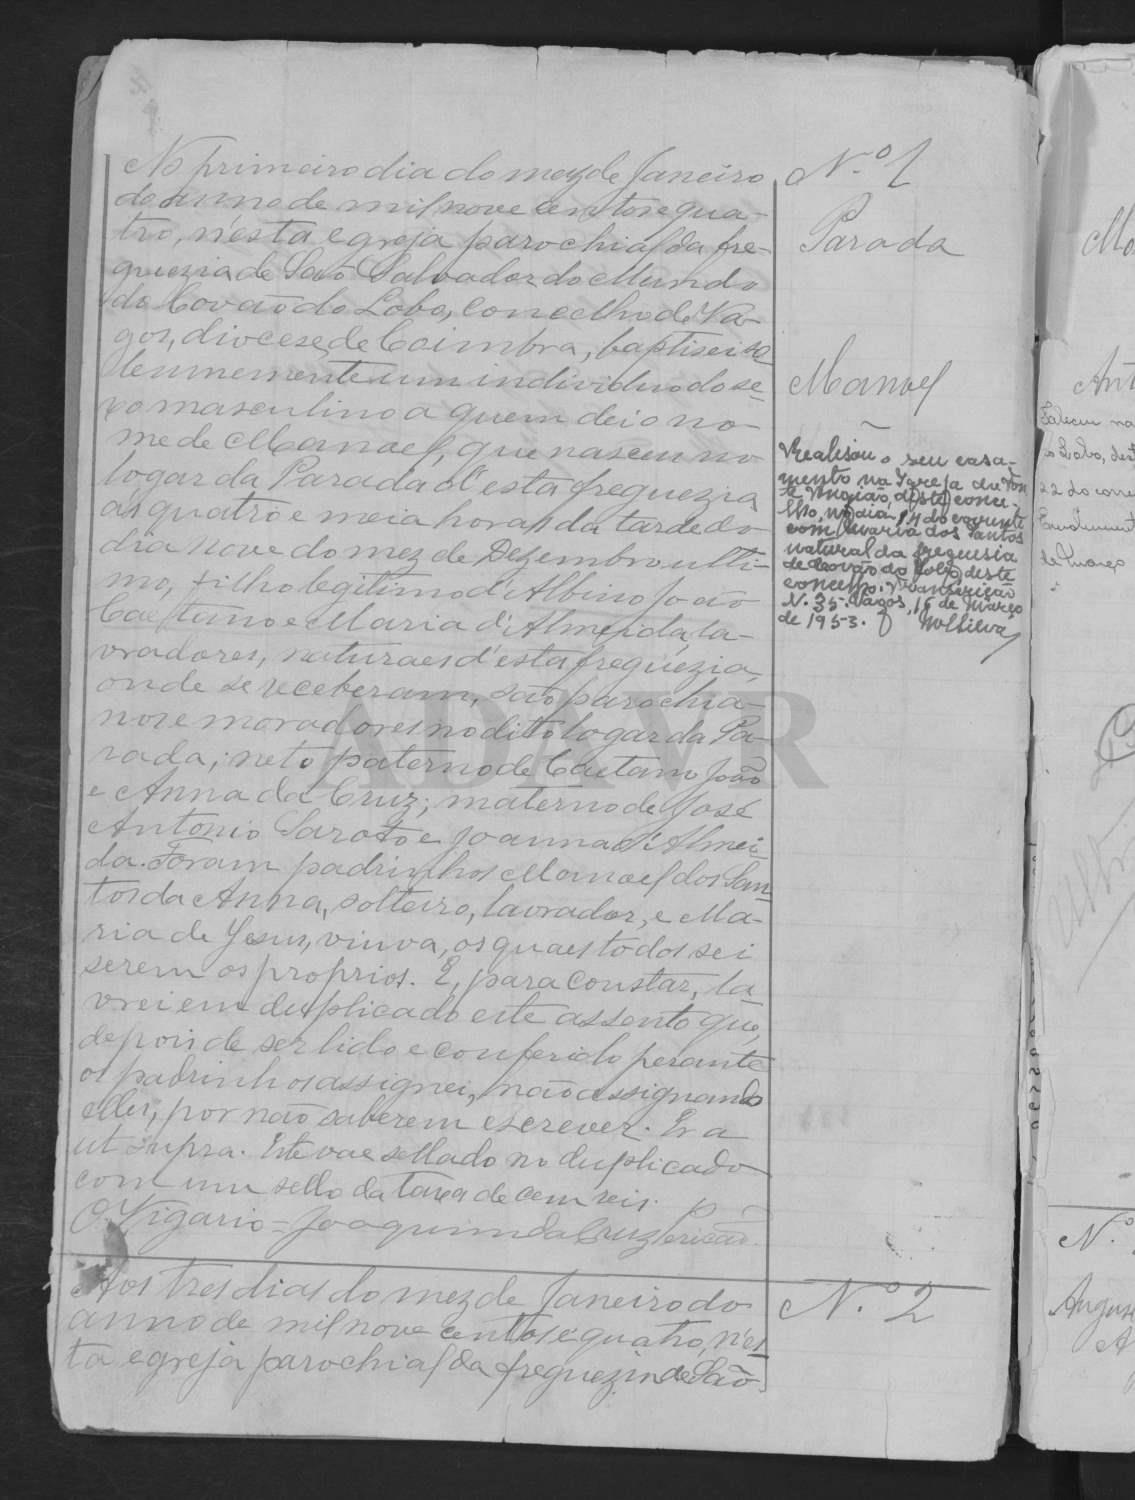 No primeiro dia do mez de Janeiro
do anno de mil nove centos e qua-
tro, n'esta egreja parochial da fre-
guezia de São Salvador do Mundo
de Covão do Lobo, concelho de Va-
gos, diocese de Coimbra, baptisei so-
lemnemente um individuo do se-
xo masculino a quem dei o no-
me de Manoel, que nasceu no
logar da Parada d'esta freguezia
ás quatro e meia horas da tarde do
dia nove do mez de Dezembro ulti-
mo, filho legitimo d'Albino João
Caetano e Maria d'Almeida, la-
vradores, naturaes d'esta freguezia,
onde se receberam, são parochia-
nos e moradores no dito logar da Pa-
rada; neto paterno de Caetano João
e Anna da Cruz; materno de José
Antonio Sarôto e Joanna d'Almei-
da. Foram padrinhos Manoel dos San-
tos da Anna, solteiro, lavrador, e Ma-
ria de Jesus, viuva, os quaes todos sei
serem os proprios. E, para constar, la-
vrei em duplicado este assento que,
depois de ser lido e conferido perante
os padrinhos assignei, não assignando
elles, por não saberem escrever. Era
ut supra. Este vae sellado no duplicado
com um sello da taxa de cem reis.
O Vigario = Joaquim da Cruz
Aos tres dias do mez de Janeiro do
anno de mil nove centos e quatro, n'es-
ta egreja parochial da freguezia de São
N.º 1
Parada
Manoel
Realisou o seu casa-
mento na Igreja de Fon
te Angião, deste conce-
lho, no dia 14 do corrente
com Maria dos Santos
natural da freguesia
de Covão do Lobo, deste
concelho. Transcrição
N. 35. Vagos, 16 de Março
de 1953. MSilva
N.º 2
ADAVR
Ant
Faleceu na
do Lobo, dest
22 do corre
de Março
N.º
August
A